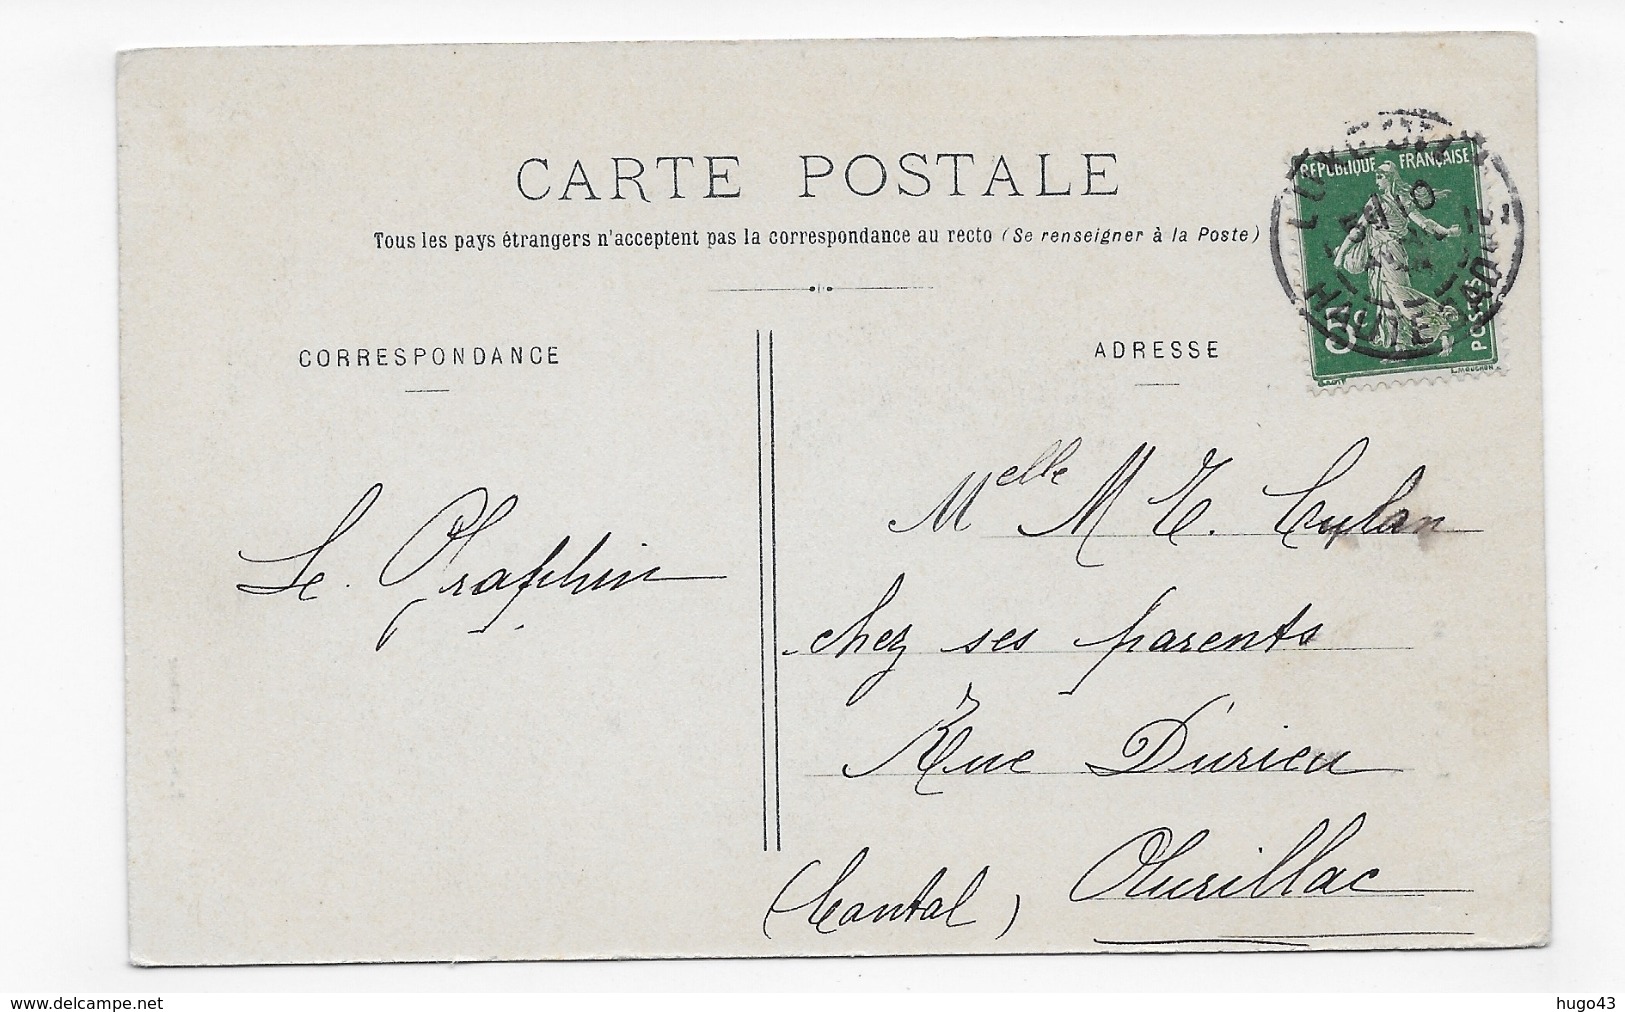 CARTE POSTALE
Tous les pays étrangers n'acceptent pas la correspondance au recto (Se renseigner à la Poste)
CORRESPONDANCE
ADRESSE
REPUBLIQUE FRANÇAISE
5c
POSTES
L. MOUCHON
HAUTE
Melle M E.
Le
chez ses parents
Rue Durieu
Aurillac
(Cantal)
www.delcampe.net
hugo43